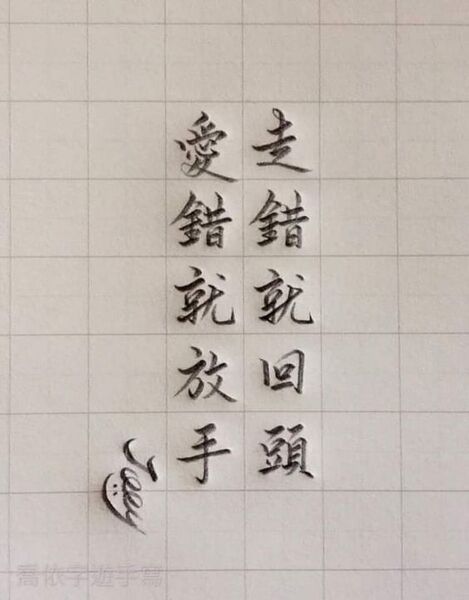 走錯就回頭
愛錯就放手
喬依字遊手寫